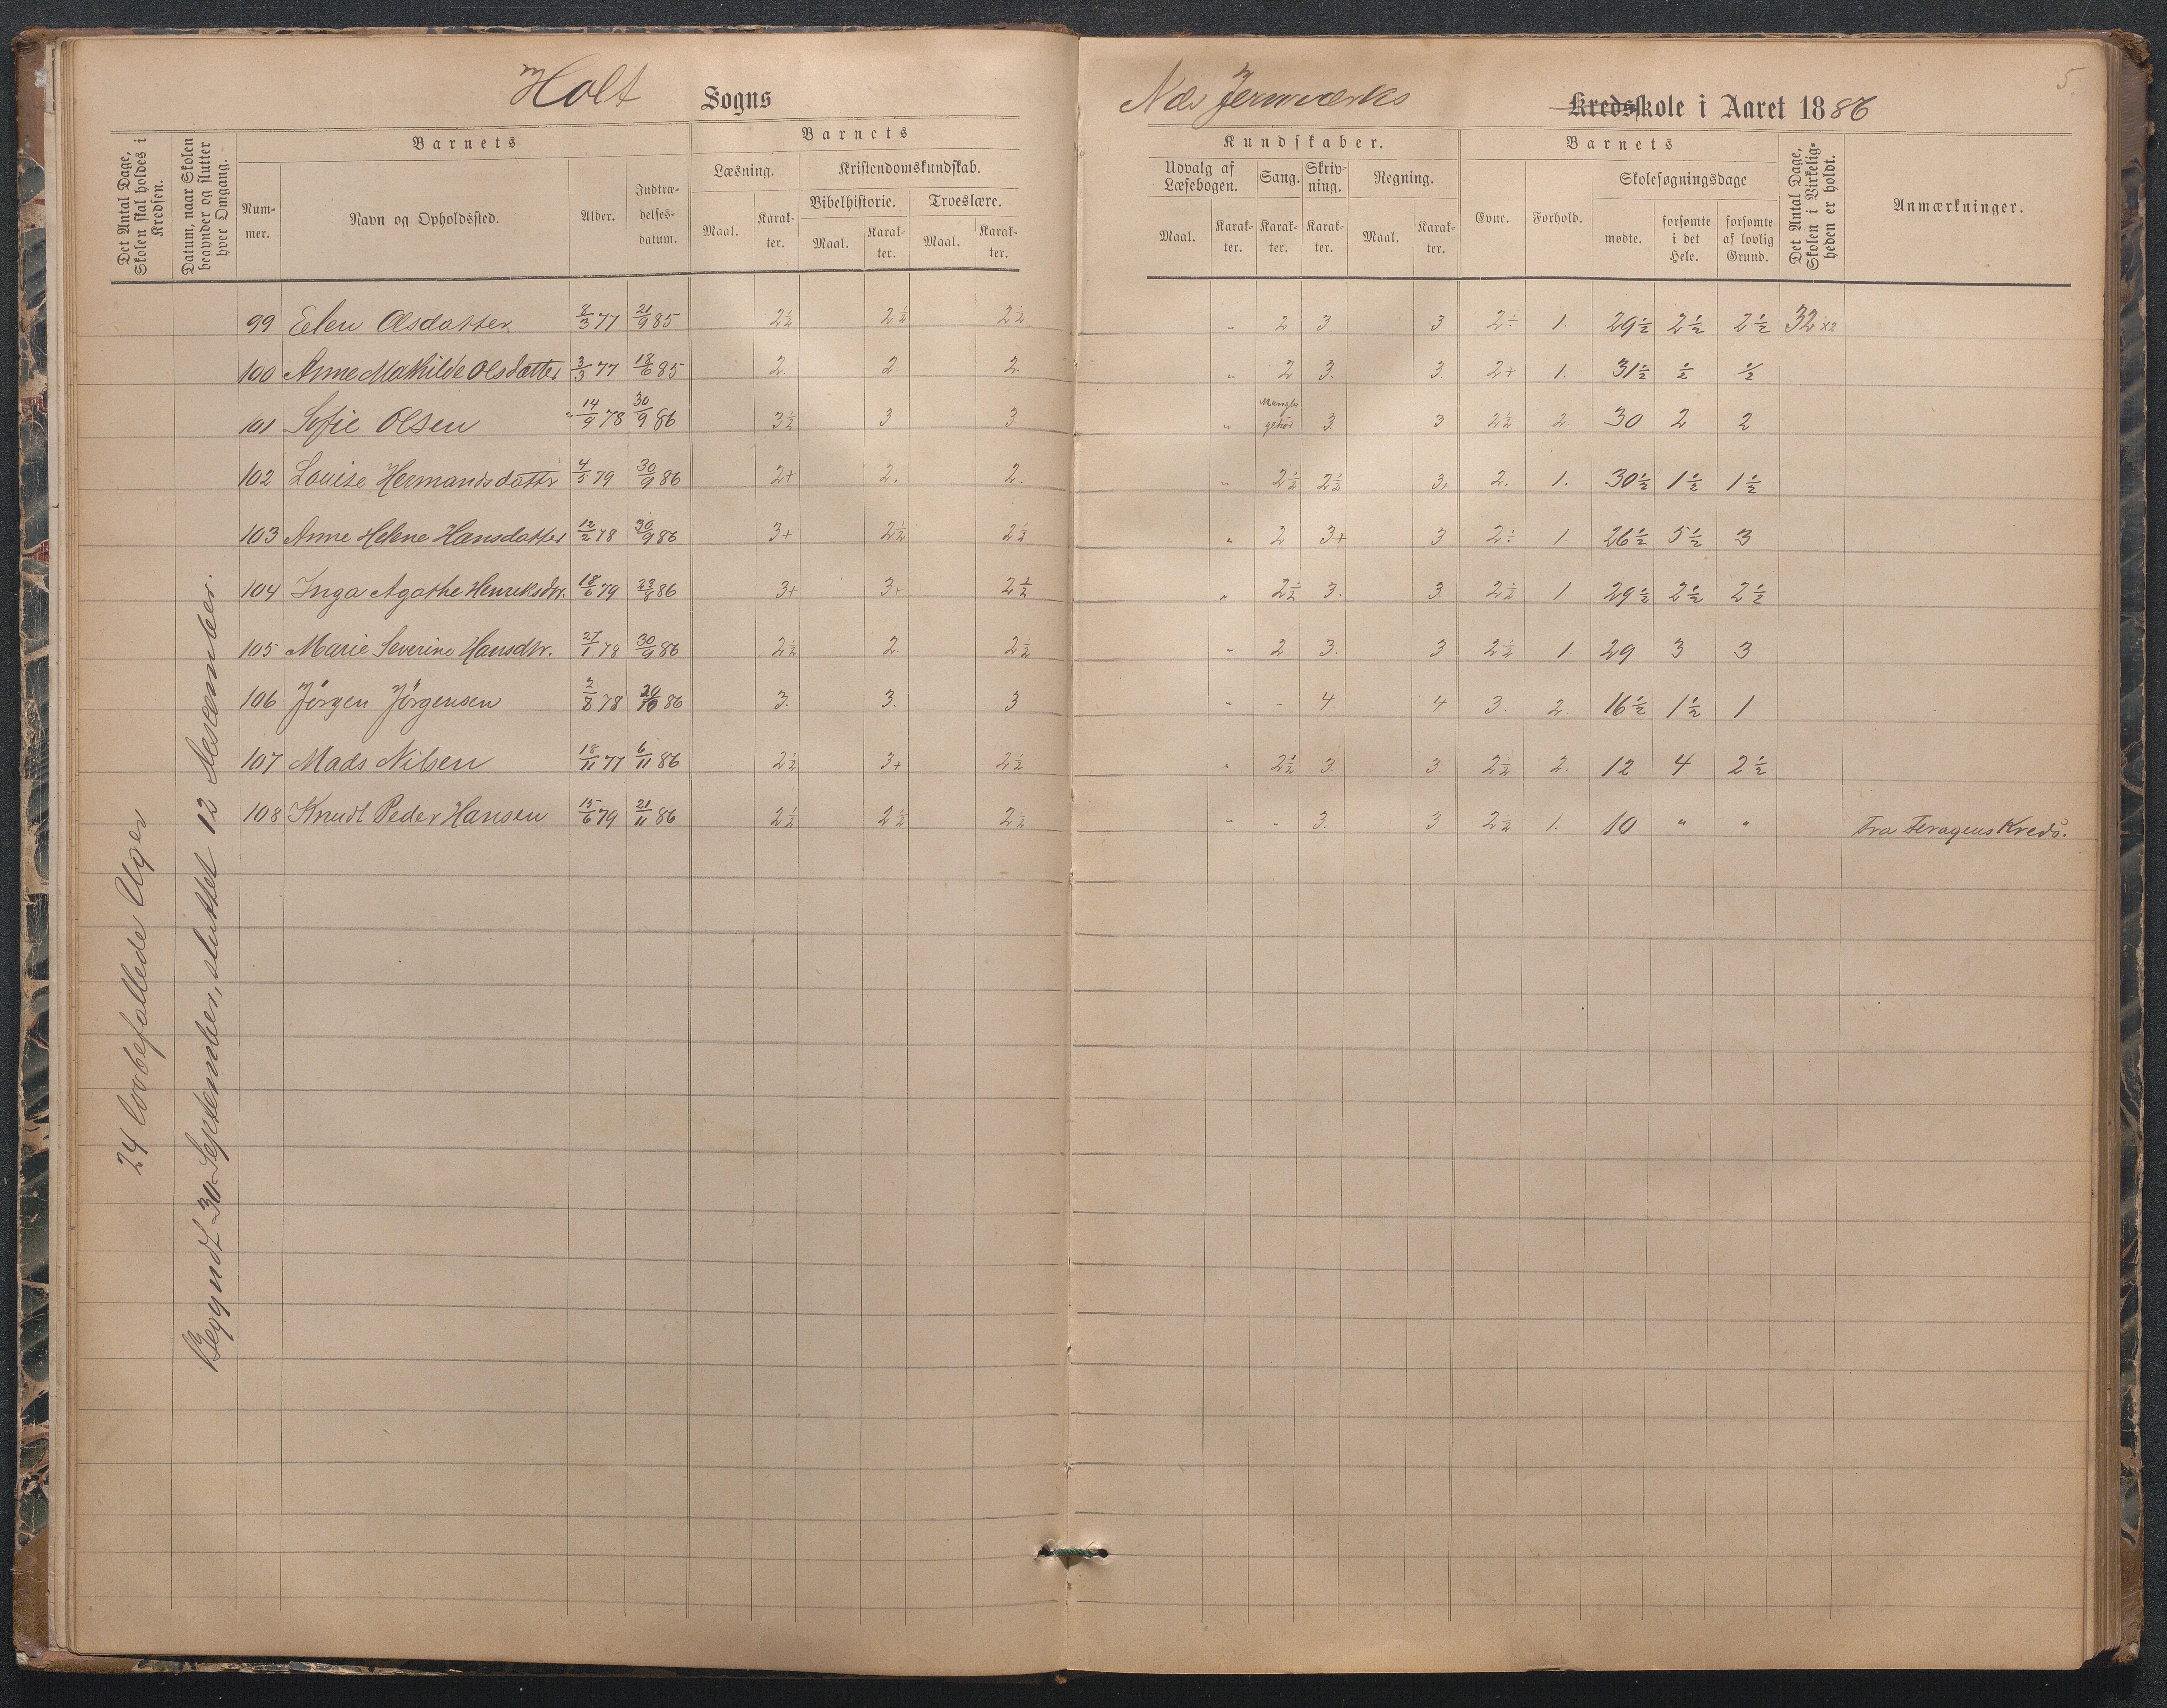 Holt Sogns
Næs Jernværks Kredsskole i Aaret 1886
5.
Det Antal Dage, Skolen skal holdes i Kredsen.
Datum, naar Skolen begynder og slutter hver Omgang.
Barnets
Nummer.
Navn og Opholdssted.
Alder.
Indtrædelsesdatum.
Barnets
Læsning.
Maal.
Karakter.
Kristendomskundskab.
Bibelhistorie.
Maal.
Karakter.
Troeslære.
Maal.
Karakter.
Kundskaber.
Udvalg af Læsebogen.
Maal.
Karakter.
Sang.
Karakter.
Skrivning.
Karakter.
Regning.
Maal.
Karakter.
Barnets
Evne.
Forhold.
Skolesøgningsdage
mødte.
forsømte i det Hele.
forsømte af lovlig Grund.
Det Antal Dage, Skolen i Virkeligheden er holdt.
Anmærkninger.
24 lovbefallede Uger
Begyndt 30 September, sluttet 12 Desember.
99 Elen Olsdatter 8/3 77 21/9 85 2½ 2½ 2½ " 2 3 3 2÷ 1. 29½ 2½ 2½ 32 x2
100 Anne Mathilde Olsdatter 3/3 77 18/6 85 2. 2 2. " 2 3. 3. 2+ 1. 31½ ½ ½
101 Sofie Olsen 14/9 78 30/9 86 3½ 3 3 " Mangler gehør 3. 3 2½ 2. 30 2 2
102 Louise Hermandsdattr 4/5 79 30/9 86 2+ 2. 2. " 2½ 2½ 3+ 2. 1. 30½ 1½ 1½
103 Anne Helene Hansdatter 12/2 78 30/9 86 3+ 2½ 2½ " 2 3+ 3 2÷ 1. 26½ 5½ 3
104 Inga Agathe Henriksdtr. 18/6 79 86 3+ 3+ 2½ " 2½ 3. 3. 2½ 1 29½ 2½ 2½
105 Marie Severine Hansdtr. 27/1 78 30/9 86 2½ 2 2½ " 2 3. 3 2½ 1. 29 3 3
106 Jörgen Jörgensen 78 20/10 86 3. 3. 3 " - 4. 4 3. 2. 16½ 1½ 1
107 Mads Nilsen 18/11 77 6/11 86 2½ 3+ 2½ " 2½ 3. 3. 2½ 2. 12 4 2½
108 Knudt Peder Hansen 15/6 79 21/11 86 2½ 2½ 2½ " " 3. 3 2½ 1. 10 " " Fra Feragens Kreds.